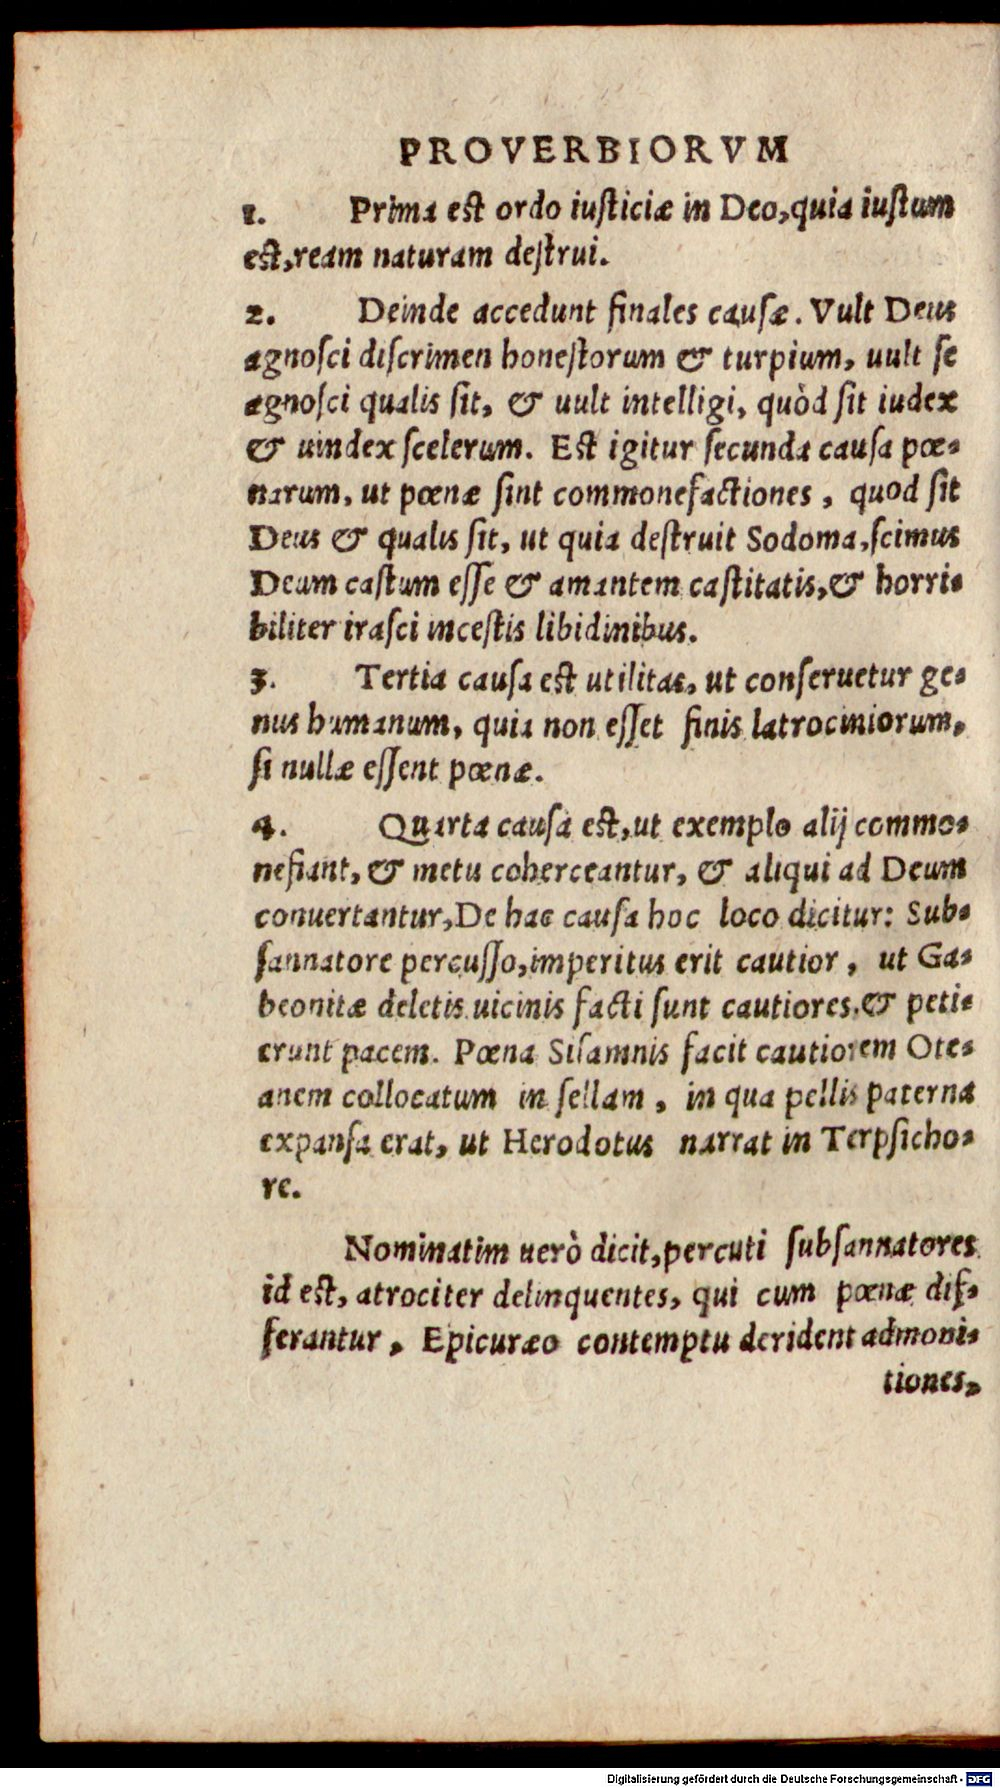 PROVERBIORVM
1. Prima est ordo iusticiæ in Deo, quia iustum
est, ream naturam destrui.
2. Deinde accedunt finales causæ. Vult Deus
agnosci discrimen honestorum & turpium, uult se
agnosci qualis sit, & uult intelligi, quòd sit iudex
& uindex scelerum. Est igitur secunda causa pœ-
narum, ut pœnæ sint commonefactiones, quod sit
Deus & qualis sit, ut quia destruit Sodoma, scimus
Deum castum esse & amantem castitatis, & horri-
biliter irasci incestis libidinibus.
3. Tertia causa est utilitas, ut conseruetur ge-
nus humanum, quia non esset finis latrociniorum,
si nullæ essent pœnæ.
4. Quarta causa est, ut exemplo alij commo-
nefiant, & metu coherceantur, & aliqui ad Deum
conuertantur, De hac causa hoc loco dicitur: Sub-
sannatore percusso, imperitus erit cautior, ut Ga-
beonitæ deletis uicinis facti sunt cautiores, & peti-
erunt pacem. Pœna Sisamnis facit cautiorem Ote-
anem collocatum in sellam, in qua pellis paterna
expansa erat, ut Herodotus narrat in Terpsicho-
re.
Nominatim uerò dicit, percuti subsannatores
id est, atrociter delinquentes, qui cum pœnæ dif-
ferantur, Epicuræo contemptu derident admoni-
tiones,
Digitalisierung gefördert durch die Deutsche Forschungsgemeinschaft - DFG